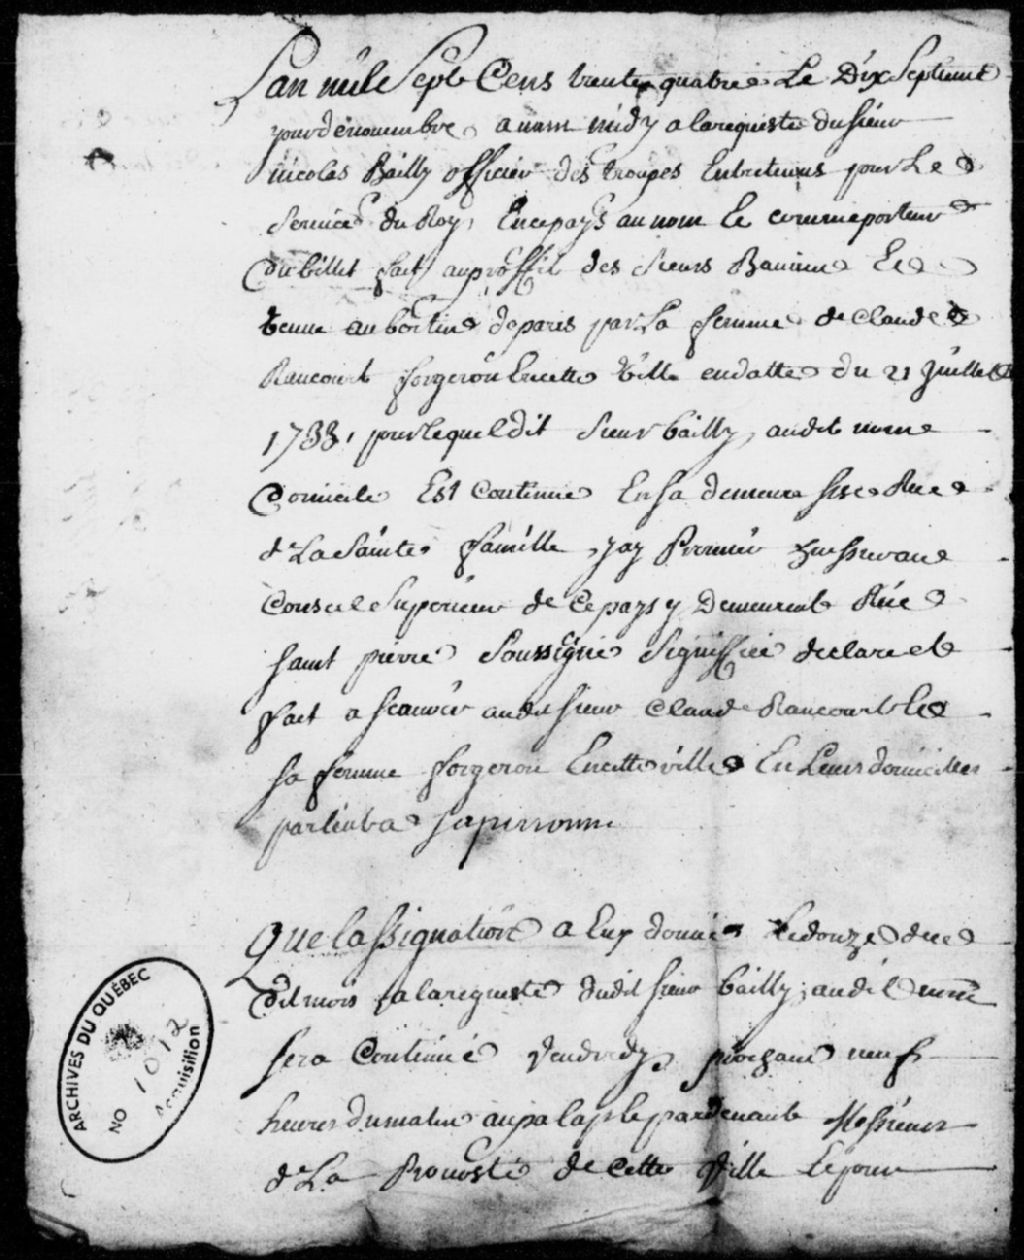 Lan mile Sept Cens trente quatre Le Dix Septieme
jour de novembre avant midy a la requeste du sieur
nicolas Bailly officier des troupes Entretenus pour Le
Service du Roy, En ce pays au nom Et comme porteur
Du billet fait au proffit des Sieurs Et
veuve de paris par La femme de Claude
Rancourt forgeron En cette Ville en datte du 21 Juillet
1733, pour lequel dit Sieur bailly, audit nom
Domicile Est Continué En sa demeure sise Rue
de La Sainte famille, jay Premier huissier au
Conseil Superieur de Ce pays y Demeurant Rue
saint pierre Soussigné Signiffié declaré et
fait a scavoir audit sieur Claude Rancourt Et
sa femme forgeron En cette ville En Leurs domiciles
parlant a sa personne
Que lassignation a Luy donnée Le douze du
Dit mois a la requeste dudit sieur bailly, audit nom
sera Continué Vendredy prochain neuf
heures du matin au palais le pardevant Messieurs
de La Prevosté de Cette Ville Le jour
ARCHIVES DU QUÉBEC
NO 1012
Acquisition